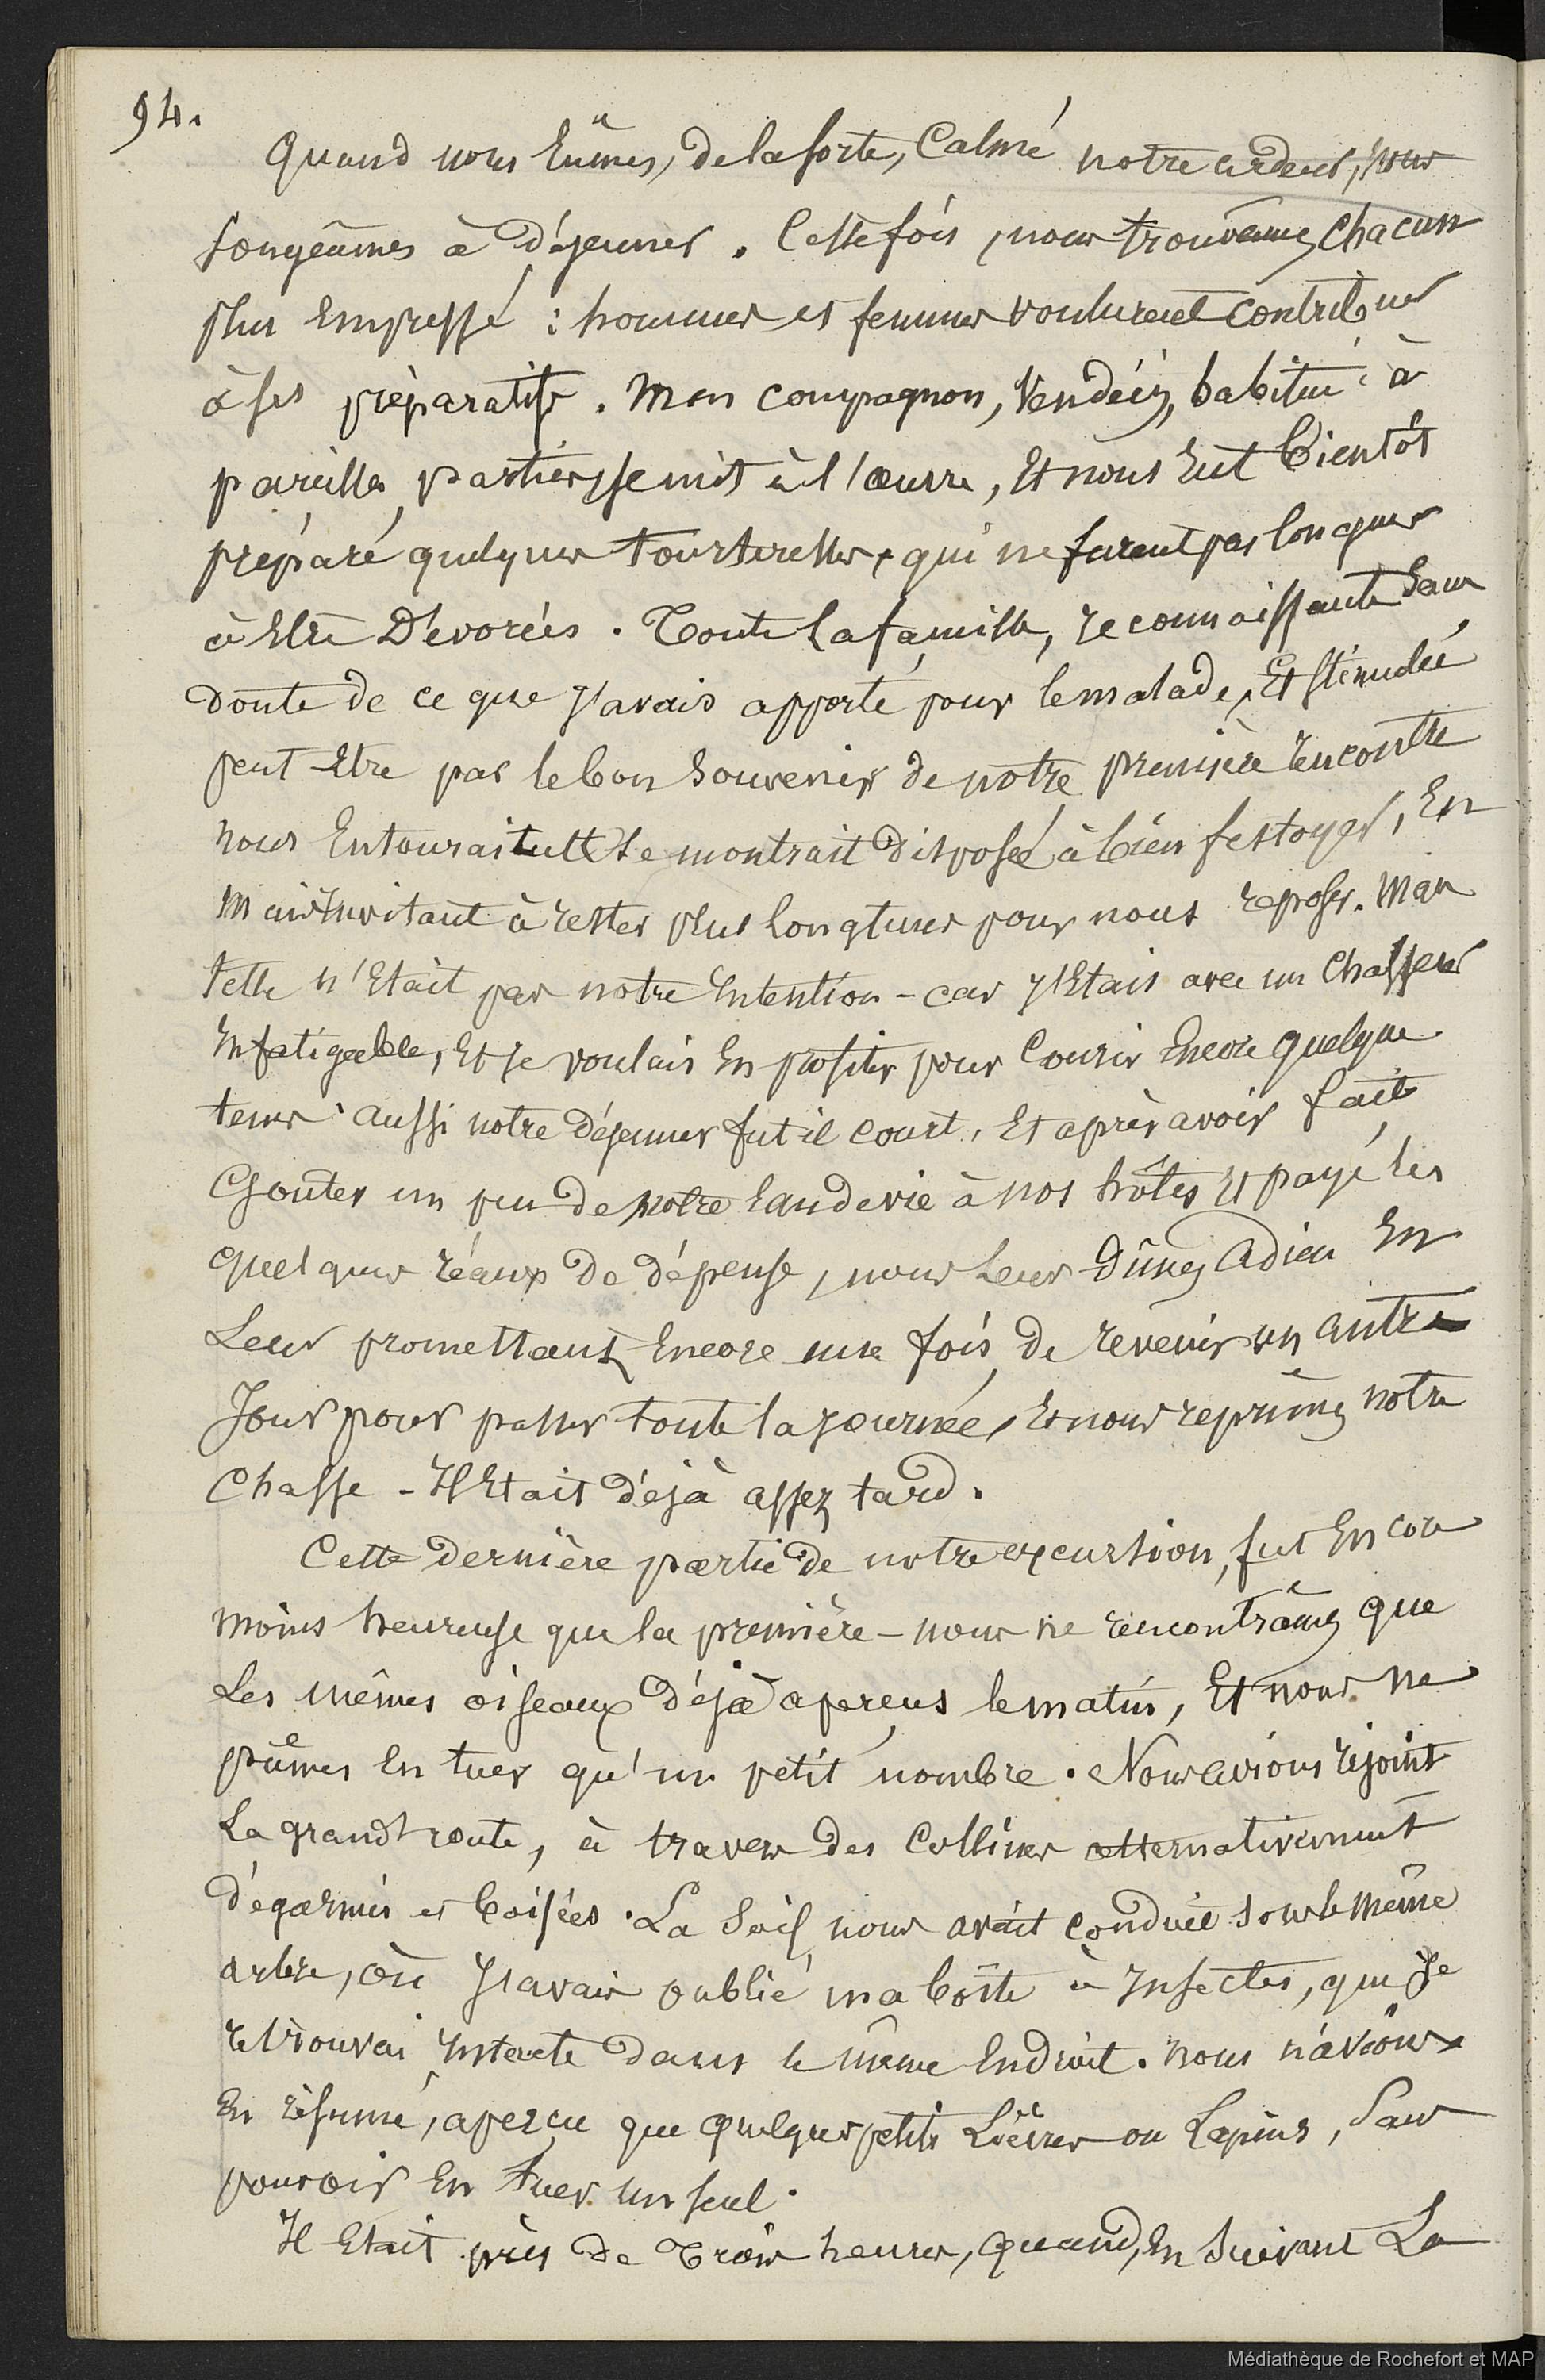 94.
Quand nous Eûmes, de la sorte, Calmé notre ardeur, nous
songeâmes à déjeuner. Cette fois, nous trouvâmes chacun
plus Empressé : hommes et femmes voulurent contribuer
à ses préparatifs. Mon compagnon, Vendéen, habitué à
pareilles parties, se mit à l'œuvre, Et nous Eut bientôt
préparé quelques tourterelles, qui ne furent pas longues
à Etre Dévorées. Toute la famille, reconnaissante sans
doute de ce que J'avais apporté pour le malade, Et stimulée
peut-Etre par le bon souvenir de notre première rencontre
nous Entourait et se montrait disposée à bien festoyer, En
m'invitant à rester plus longtems pour nous reposer. Mais
telle n'Etait pas notre intention - car J'Etais avec un Chasseur
Infatigable, Et Je voulais En profiter pour Courir Encore quelque
tems. aussi notre déjeuner fut il court, Et après avoir fait
Goûter un peu de notre Eau de vie à nos hôtes Et payé les
quelques réaux de dépense, nous Leur dîmes adieu En
Leur promettant Encore une fois de revenir un autre
Jour pour passer toute la journée, Et nous reprîmes notre
Chasse - Il Etait déjà assez tard.
Cette dernière partie de notre excursion, fut Encore
moins heureuse que la première - nous ne rencontrâmes que
Les mêmes oiseaux déjà aperçus le matin, Et nous ne
pûmes En tuer qu'un petit nombre. Nous avions rejoint
La grand route, à travers des Collines alternativement
dégarnies et boisées. La soif nous avait conduit sous le même
arbre, où J'avais oublié ma boîte à Insectes, que Je
retrouvai Intacte dans le même Endroit. Nous n'avions
En résumé, aperçu que quelques petits Lièvres ou Lapins, sans
pouvoir En tuer un seul.
Il Etait près de Trois heures, quand, En suivant La
Médiathèque de Rochefort et MAP